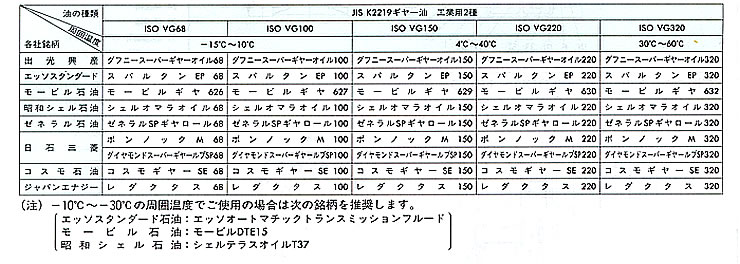 油の種類 JIS K2219ギヤー油 工業用2種
周囲温度 ISO VG68 ISO VG100 ISO VG150 ISO VG220 ISO VG320
各社銘柄 −15℃〜10℃ 4℃〜40℃ 30℃〜60℃
出光興産 ダフニースーパーギヤーオイル68 ダフニースーパーギヤーオイル100 ダフニースーパーギヤーオイル150 ダフニースーパーギヤーオイル220 ダフニースーパーギヤーオイル320
エッソスタンダード スパルタンEP 68 スパルタンEP 100 スパルタンEP 150 スパルタンEP 220 スパルタンEP 320
モービル石油 モービルギヤ 626 モービルギヤ 627 モービルギヤ 629 モービルギヤ 630 モービルギヤ 632
昭和シェル石油 シェルオマラオイル 68 シェルオマラオイル 100 シェルオマラオイル 150 シェルオマラオイル 220 シェルオマラオイル 320
ゼネラル石油 ゼネラルSPギヤロール 68 ゼネラルSPギヤロール 100 ゼネラルSPギヤロール 150 ゼネラルSPギヤロール 220 ゼネラルSPギヤロール 320
日石三菱 ボンノックM 68 ボンノックM 100 ボンノックM 150 ボンノックM 220 ボンノックM 320
ダイヤモンドスーパーギヤールブSP68 ダイヤモンドスーパーギヤールブSP100 ダイヤモンドスーパーギヤールブSP150 ダイヤモンドスーパーギヤールブSP220 ダイヤモンドスーパーギヤールブSP320
コスモ石油 コスモギヤーSE 68 コスモギヤーSE 100 コスモギヤーSE 150 コスモギヤーSE 220 コスモギヤーSE 320
ジャパンエナジー レダクタス 68 レダクタス 100 レダクタス 150 レダクタス 220 レダクタス 320
(注) −10℃〜−30℃の周囲温度でご使用の場合は次の銘柄を推奨します。
エッソスタンダード石油:エッソオートマチックトランスミッションフルード
モービル石油:モービルDTE15
昭和シェル石油:シェルテラスオイルT37